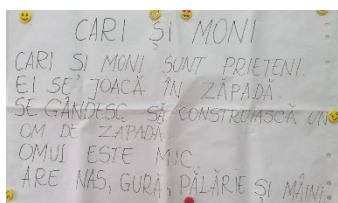 CARI ȘI MONI
CARI SI MONI SUNT PRIETENI.
EI SE JOACĂ ÎN ZĂPADĂ.
SE GÂNDESC SĂ CONSTRUIASCĂ UN
OM DE ZĂPADĂ.
OMUL ESTE MIC.
ARE NAS, GURĂ, PĂLĂRIE ȘI MÂINI.